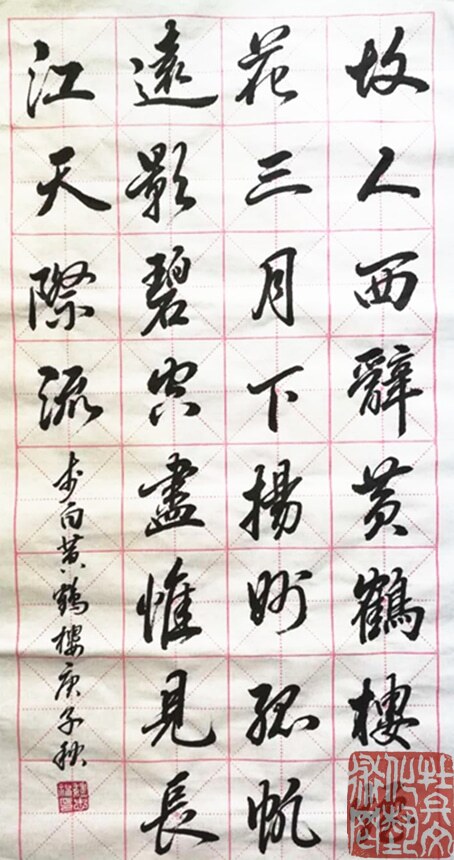 故人西辭黄鶴樓
花三月下揚州孤帆
遠影碧空盡惟見長
江天際流
李白黄鶴樓庚子秋